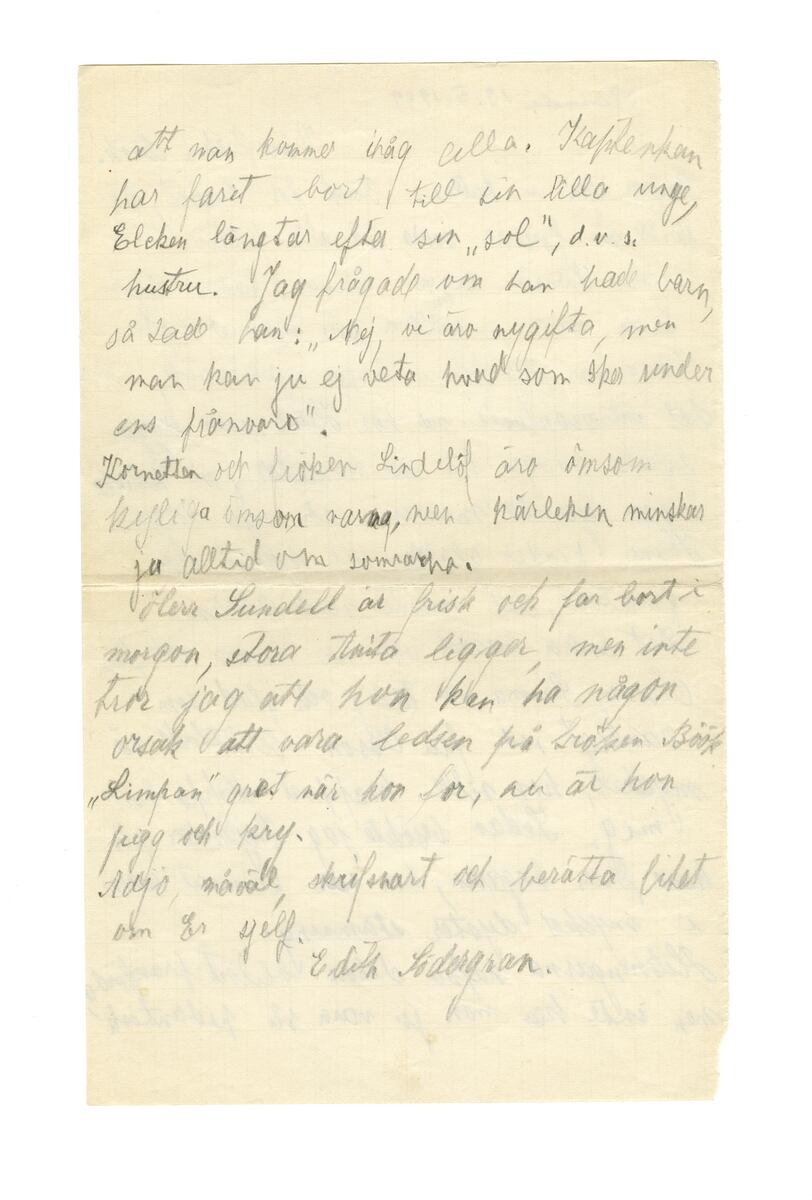 att man kommer ihåg alla. Kaptenskan
har farit bort till sin lilla unge,
Elcken längtar efter sin „sol”, d.v.s.
hustru. Jag frågade om han hade barn,
så sade han: „Nej, vi äro nygifta, men
man kan ju ej veta hvad som sker under
ens frånvaro”.
Kornetten och fröken Lindelöf äro ömsom
kyliga ömsom varma, men kärleken minskar
ju alltid om somrarna.
Herr Sundell är frisk och far bort i
morgon, stora Anita ligger, men inte
tror jag att hon kan ha någon
orsak att vara ledsen på fröken Böök
„Limpan” gret när hon for, nu är hon
pigg och kry.
Adjö, må väl, skrif snart och berätta litet
om Er sjelf.
Edith Södergran.